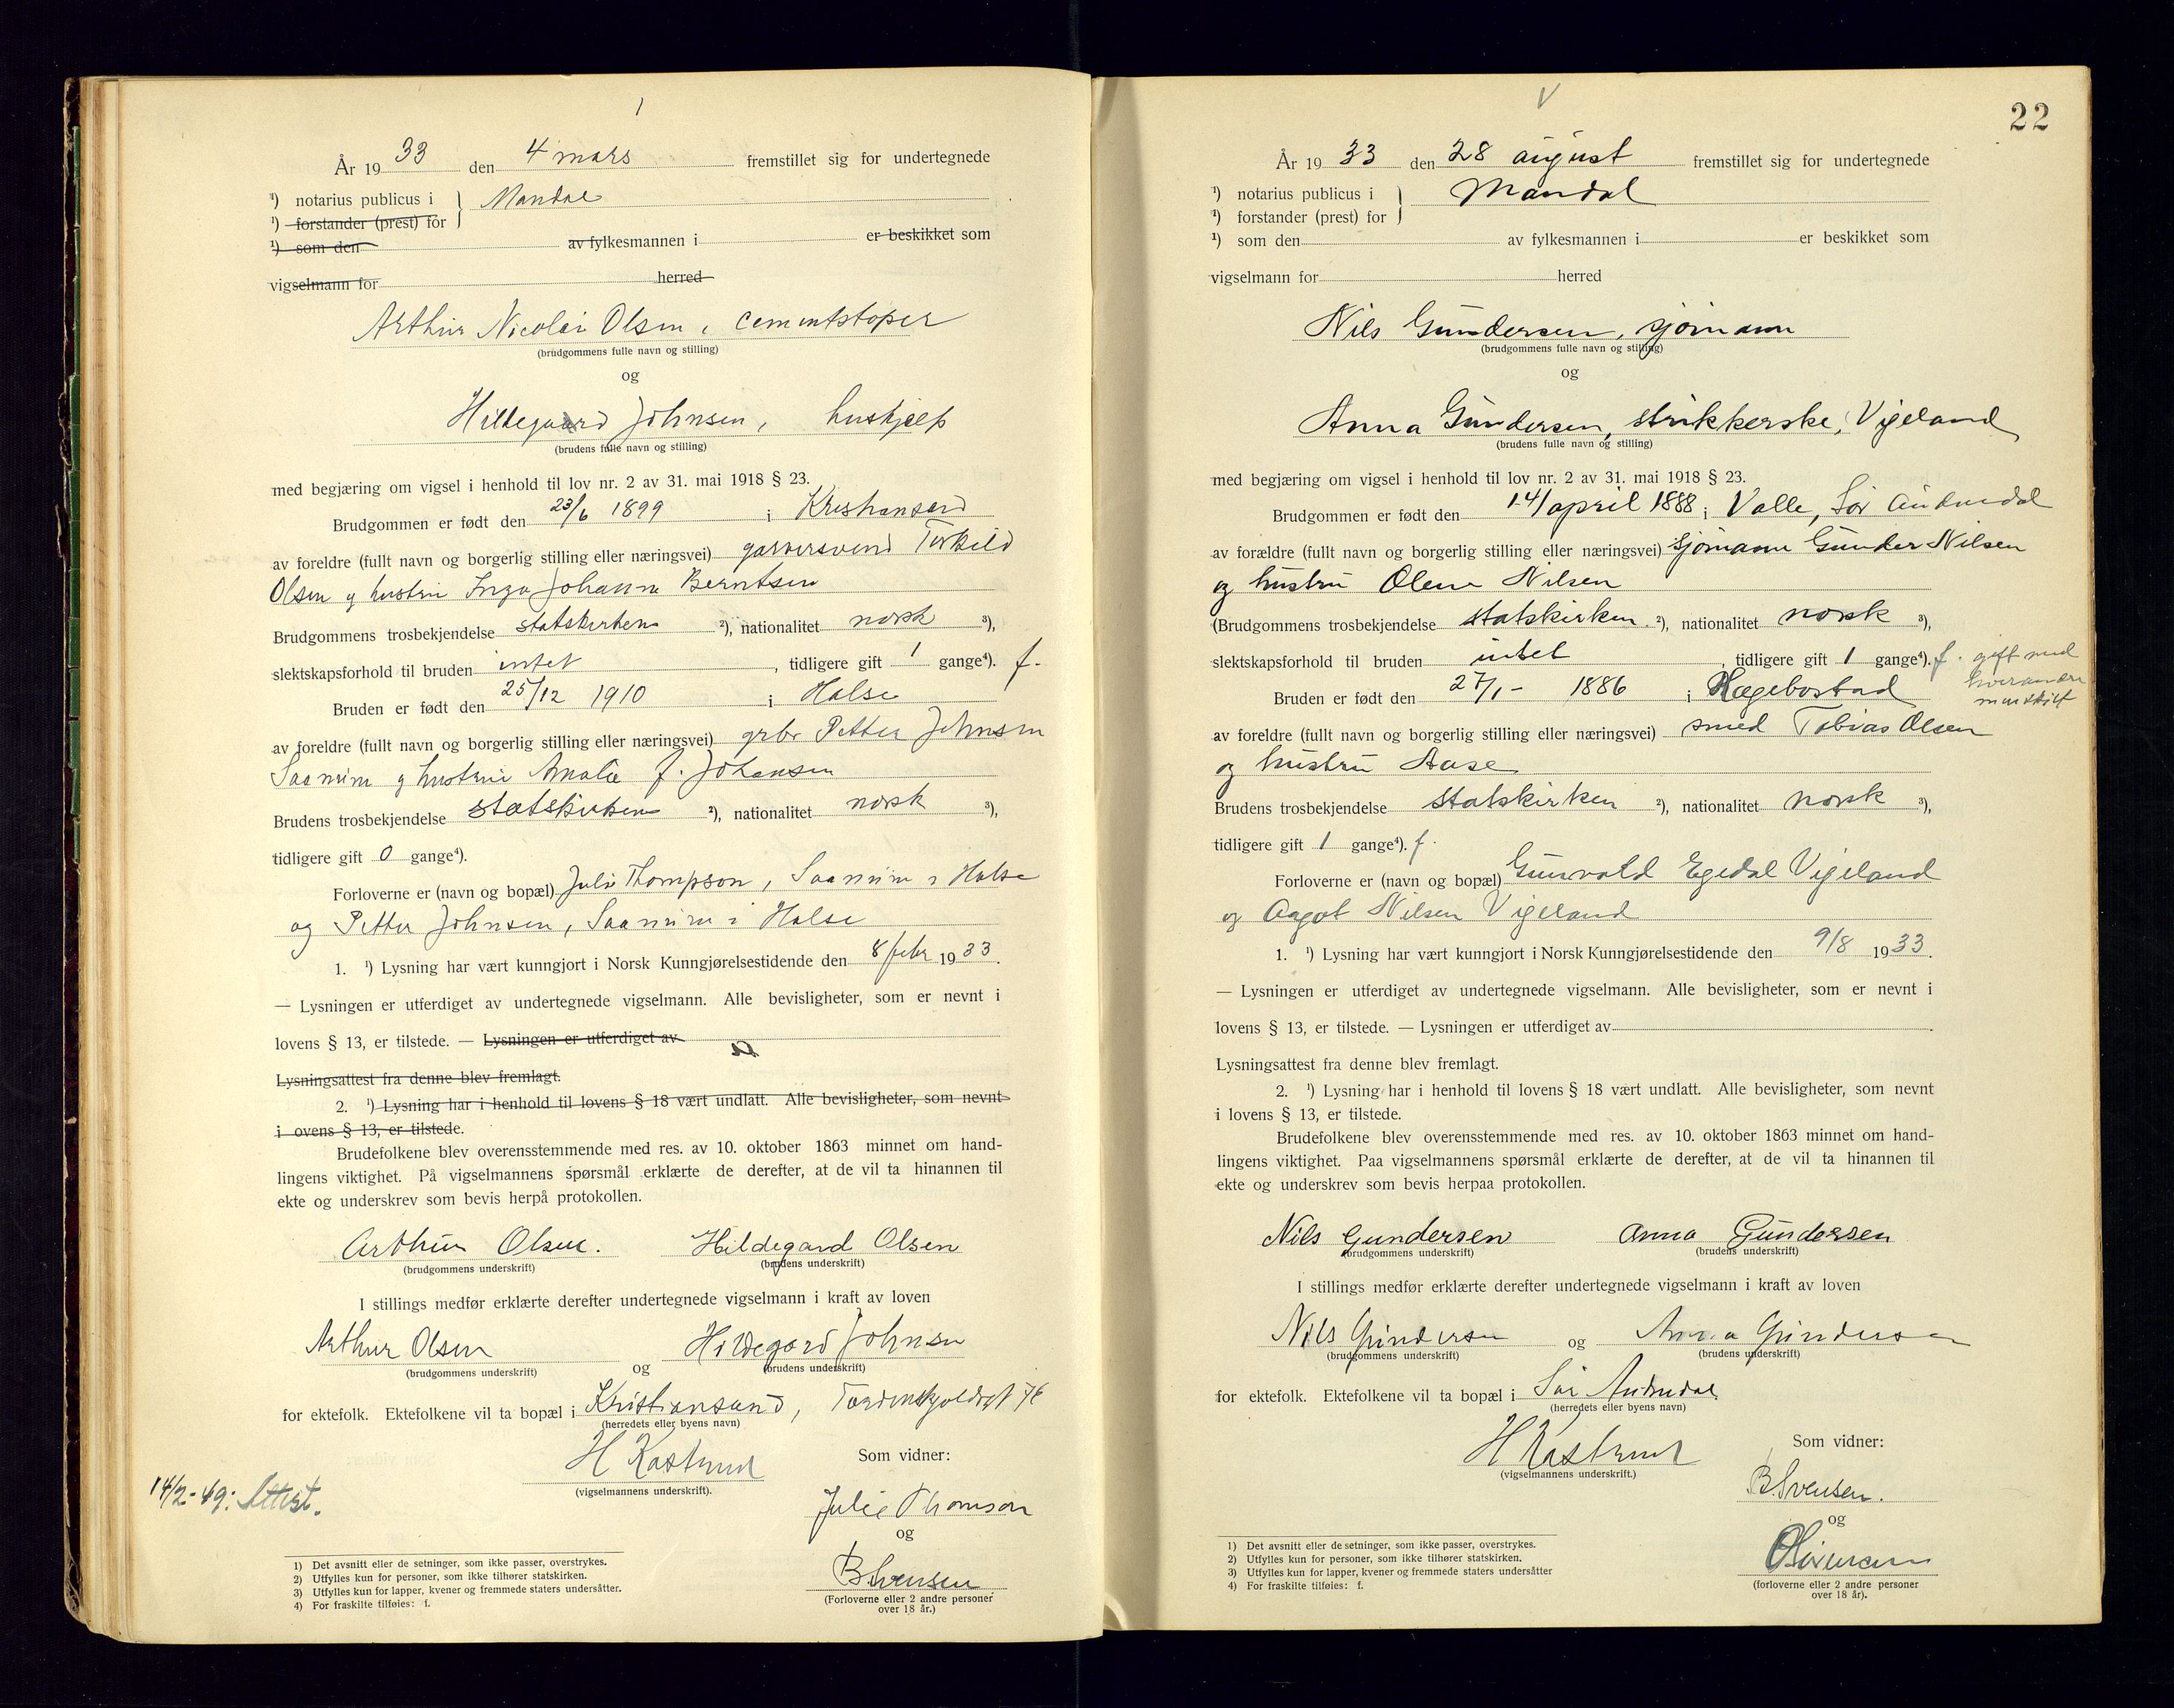 1
År 19 33 den 4 mars fremstillet sig for undertegnede
¹) notarius publicus i } Mandal
¹) forstander (prest) for
¹) som den av fylkesmannen i er beskikket som
vigselmann for herred
Arthur Nicolai Olsen, cementstøper
(brudgommens fulle navn og stilling)
og
Hildegaard Johnsen, huskjelp
(brudens fulle navn og stilling)
med begjæring om vigsel i henhold til lov nr. 2 av 31. mai 1918 § 23.
Brudgommen er født den 23/6 1899 i Kristiansand
av foreldre (fullt navn og borgerlig stilling eller næringsvei) garversvend Torkild
Olsen og hustru Inga Johanne Berntsen
Brudgommens trosbekjendelse statskirken ²), nationalitet norsk ³),
slektskapsforhold til bruden intet, tidligere gift 1 gange⁴). f.
Bruden er født den 25/12 1910 i Halse
av foreldre (fullt navn og borgerlig stilling eller næringsvei) grbr Petter Johnsen
Saanum og hustru Amalie f. Johansen
Brudens trosbekjendelse statskirken ²), nationalitet norsk ³),
tidligere gift 0 gange⁴).
Forloverne er (navn og bopæl) Julie Thompson, Saanum i Halse
og Petter Johnsen, Saanum i Halse
1. ¹) Lysning har vært kunngjort i Norsk Kunngjørelsestidende den 8 febr 19 33.
— Lysningen er utferdiget av undertegnede vigselmann. Alle bevisligheter, som er nevnt i
lovens § 13, er tilstede. — Lysningen er utferdiget av
Lysningsattest fra denne blev fremlagt.
2. ¹) Lysning har i henhold til lovens § 18 vært undlatt. Alle bevisligheter, som nevnt
i ovens § 13, er tilstede.
Brudefolkene blev overensstemmende med res. av 10. oktober 1863 minnet om hand-
lingens viktighet. På vigselmannens spørsmål erklærte de derefter, at de vil ta hinannen til
ekte og underskrev som bevis herpå protokollen.
Arthur Olsen. Hildegard Olsen
(brudgommens underskrift) (brudens underskrift)
I stillings medfør erklærte derefter undertegnede vigselmann i kraft av loven
Arthur Olsen og Hildegard Johnsen
(brudgommens underskrift) (brudens underskrift)
for ektefolk. Ektefolkene vil ta bopæl i Kristiansand, Tordenskjoldsgt 76
(herredets eller byens navn)
H Kastrud
(vigselmannens underskrift).
Som vidner:
14/2-49: Attest.
Julie Thomson
og
B Svensen
(Forloverne eller 2 andre personer
over 18 år.)
1) Det avsnitt eller de setninger, som ikke passer, overstrykes.
2) Utfylles kun for personer, som ikke tilhører statskirken.
3) Utfylles kun for lapper, kvener og fremmede staters undersåtter.
4) For fraskilte tilføies: f.
V
22
År 19 33 den 28 august fremstillet sig for undertegnede
¹) notarius publicus i } Mandal
¹) forstander (prest) for
¹) som den av fylkesmannen i er beskikket som
vigselmann for herred
Nils Gundersen, sjømann
(brudgommens fulle navn og stilling)
og
Anna Gundersen, strikkerske, Vigeland
(brudens fulle navn og stilling)
med begjæring om vigsel i henhold til lov nr. 2 av 31. mai 1918 § 23.
Brudgommen er født den 14/april 1888 i Valle, Sør Audnedal
av forældre (fullt navn og borgerlig stilling eller næringsvei) sjømann Gunder Nilsen
og hustru Olene Nilsen
(Brudgommens trosbekjendelse statskirken ²), nationalitet norsk ³),
slektskapsforhold til bruden intet, tidligere gift 1 gange⁴). f. gift med
hverandre
men skilt
Bruden er født den 27/1- 1886 i Hægebostad
av foreldre (fullt navn og borgerlig stilling eller næringsvei) smed Tobias Olsen
og hustru Aase
Brudens trosbekjendelse statskirken ²), nationalitet norsk ³),
tidligere gift 1 gange⁴). f.
Forloverne er (navn og bopæl) Gunvald Egedal Vigeland
og Aagot Nilsen Vigeland
1. ¹) Lysning har vært kunngjort i Norsk Kunngjørelsestidende den 9/8 19 33.
— Lysningen er utferdiget av undertegnede vigselmann. Alle bevisligheter, som er nevnt i
lovens § 13, er tilstede. — Lysningen er utferdiget av
Lysningsattest fra denne blev fremlagt.
2. ¹) Lysning har i henhold til lovens § 18 vært undlatt. Alle bevisligheter, som nevnt
i lovens § 13, er tilstede.
Brudefolkene blev overensstemmende med res. av 10. oktober 1863 minnet om hand-
lingens viktighet. Paa vigselmannens spørsmål erklærte de derefter, at de vil ta hinannen til
ekte og underskrev som bevis herpaa protokollen.
Nils Gundersen Anna Gundersen
(brudgommens underskrift) (brudens underskrift)
I stillings medfør erklærte derefter undertegnede vigselmann i kraft av loven
Nils Gundersen og Anna Gundersen
(brudgommens underskrift) (brudens underskrift)
for ektefolk. Ektefolkene vil ta bopæl i Sør Audnedal
(herredets eller byens navn)
H Kastrud
(vigselmannens underskrift.)
Som vidner:
B. Svensen.
og
(forloverne eller 2 andre personer
over 18 år).
1) Det avsnitt eller de setninger, som ikke passer, overstrykes.
2) Utfylles kun for personer, som ikke tilhører statskirken.
3) Utfylles kun for lapper, kvener og fremmede staters undersåtter
4) For fraskilte tilføies: f.